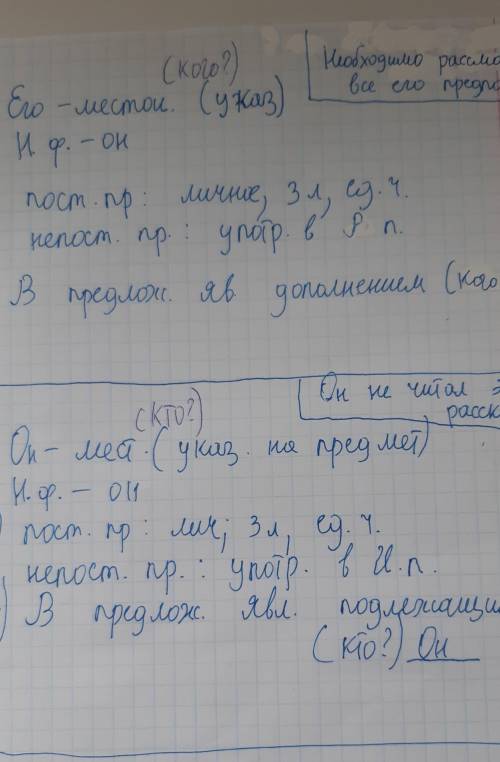 (кого?)
Необходимо рассмо
все его предло
Его - местои. (указ)
Н. ф. - он
пост. пр : личное, 3 л, ед. ч.
непост. пр. : употр. в Р п.
В предлож. яв. дополнением (кого
Он не читал э
расск
(кто?)
Он - мест. (указ. на предмет)
Н. ф. - он
пост. пр : лич; 3 л, ед. ч.
непост. пр. : употр. в И. п.
В предлож. явл. подлежащи
(кто?) Он